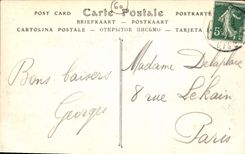 60
POST CARD Carte Postale POSTKARTE
BRIEFKAART
CARTOLINA POSTALE ОТКРЫТОЕ ПИСЬМО TARJETA
5
Bons baisers
Georges
Madame Delaplace
8 rue Lekain
Paris